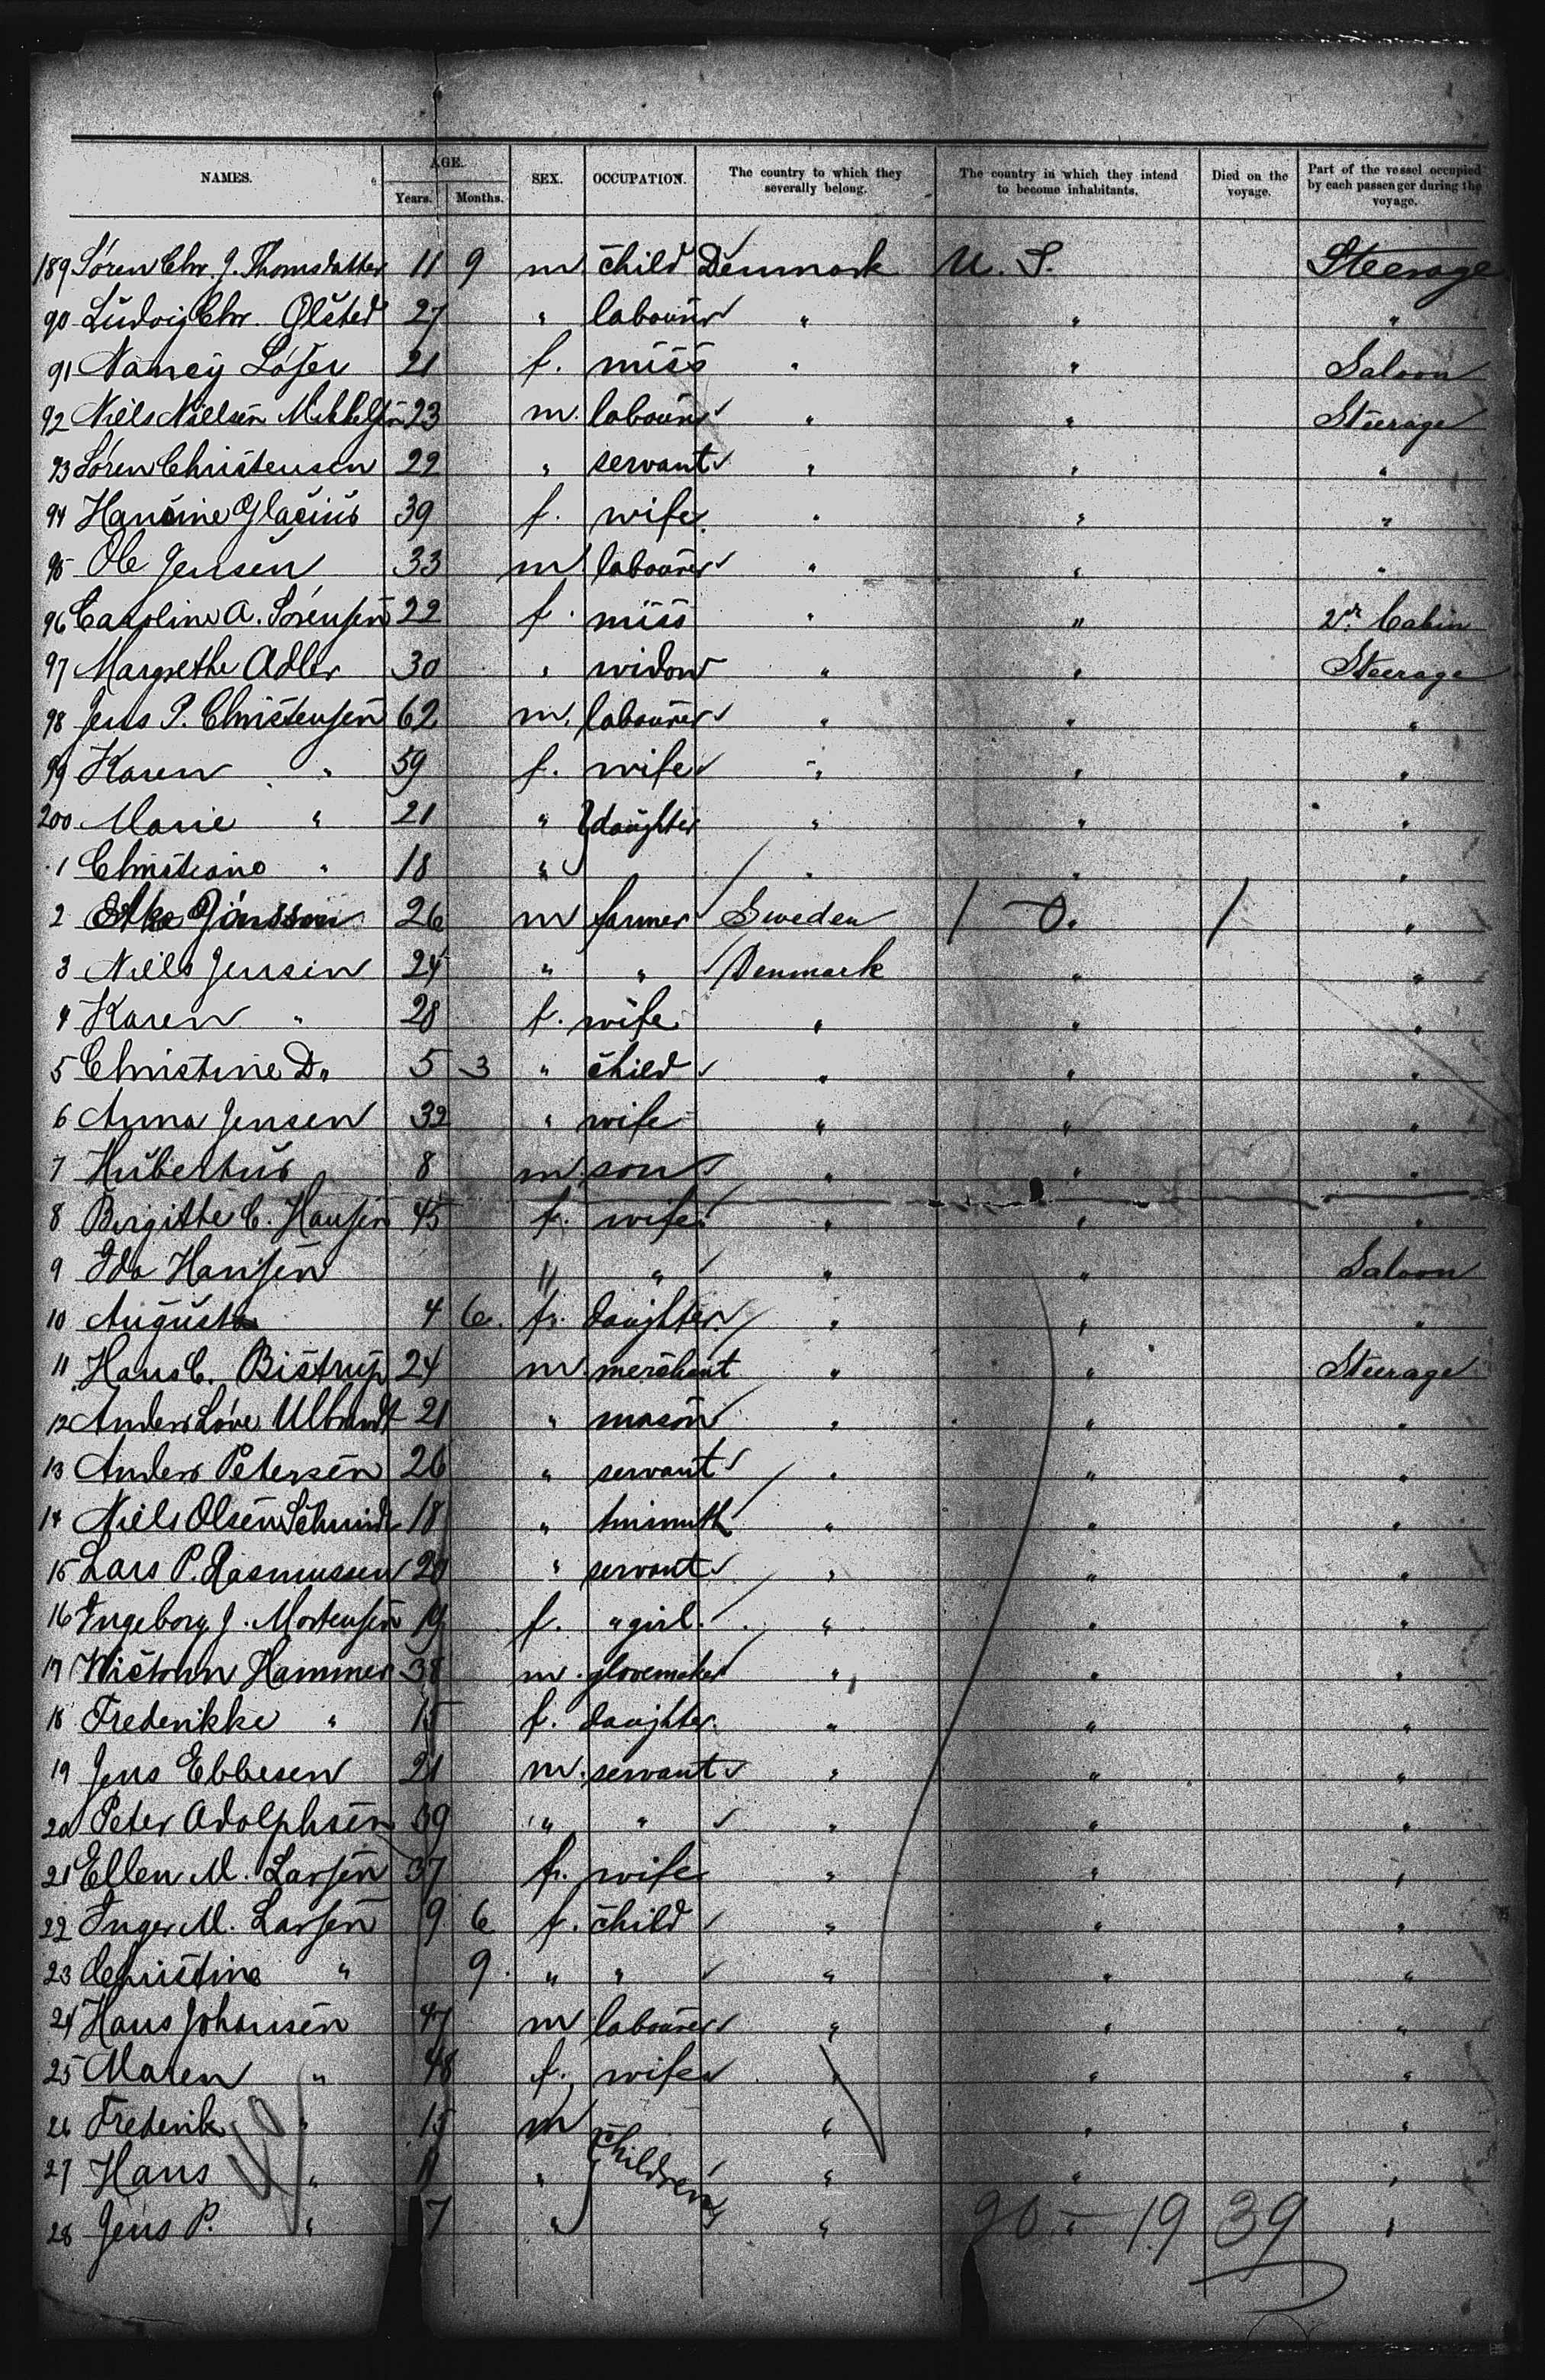 NAMES. AGE. Years. Months. SEX. OCCUPATION. The country to which they severally belong. The country in which they intend to become inhabitants. Died on the voyage. Part of the vessel occupied by each passenger during the voyage.
189 Sören Chr. J. Thomsdatter 11 9 m child Denmark U. S. Steerage
90 Ludvig Chr. Ølsted 27 " labourer " " "
91 Nancy Löser 21 f. miss " " Saloon
92 Niels Nielsen Mikkelsen 23 m. labourer " " Steerage
93 Sören Christensen 22 " servant " " "
94 Hansine Glacius 39 f. wife " " "
95 Ole Jensen 33 m labourer " " "
96 Caroline A. Sörensen 22 f. miss " " 2d Cabin
97 Margrethe Adler 30 " widow " " Steerage
98 Jens P. Christensen 62 m. labourer " " "
99 Karen " 59 f. wife " " "
200 Marie " 21 " daughter " " "
1 Christiane " 18 " " " "
2 Jönsson 26 m farmer Sweden "
3 Niels Jensen 24 " " Denmark " "
4 Karen " 28 f. wife " " "
5 Christine Do 5 3 " child " " "
6 Anna Jensen 32 " wife " " "
7 Hubertus 8 m. son " " "
8 Birgitte C. Hansen 45 f. wife " " "
9 Ida Hansen " " " " Saloon
10 Augusta 4 6. f. daughter " " "
11 Hans C. Bistrup 24 m. merchant " " Steerage
12 Anders Löve Ulbrandt 21 " mason " " "
13 Anders Petersen 26 " servant " " "
14 Niels Olsen Schmidt 18 " tinsmith " " "
15 Lars P. Rasmussen 20 " servant " " "
16 Ingeborg J. Mortensen 19 f. " girl " " "
17 Hammer 38 m. glovemaker " " "
18 Frederikke " 15 f. daughter " " "
19 Jens Ebbesen 21 m. servant " " "
20 Peter Adolphsen 39 " " " " "
21 Ellen M. Larsen 37 f. wife " " "
22 Inger M. Larsen 9 6 f. child " " "
23 Christine " 9. " " " " "
24 Hans Johansen 47 m labourer " " "
25 Maren " 48 f. wife " " "
26 Frederik " 15 m Children " " "
27 Hans " 11 " " " "
28 Jens P. " 7 " " " "
20 — 19 39